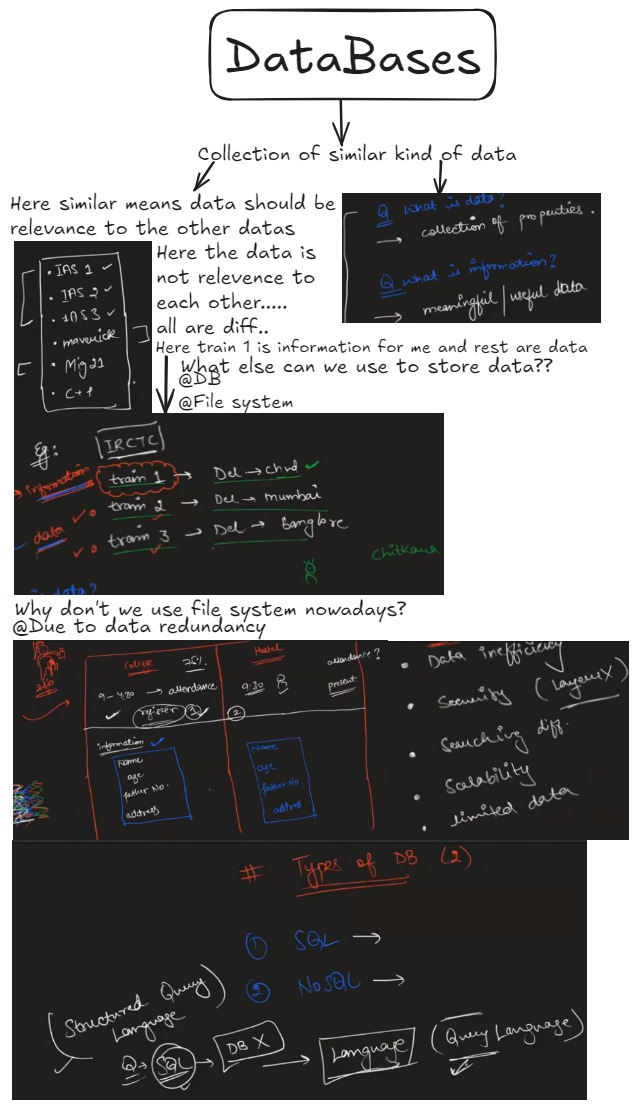 DataBases
Collection of similar kind of data
Here similar means data should be
relevance to the other datas
Q what is data?
→ collection of properties.
Q what is information?
→ meaningful/useful data
• IAS 1 ✓
• IAS 2 ✓
• IAS 3 ✓
• maverick
• Mig 21
• C++
Here the data is
not relevence to
each other.....
all are diff..
Here train 1 is information for me and rest are data
What else can we use to store data??
@DB
@File system
Eg: IRCTC
information train 1 → Del → chd ✓
train 2 → Del → mumbai
data train 3 → Del → Banglore
Chitkara
data?
Why don't we use file system nowadays?
@Due to data redundancy
College 75%
Hostel
attendance?
9-4:30 → attendance
9:30
present
register 1
2
information ✓
Name
age
father No.
address
Name
age
father No.
address
• Data inefficiency
• Security (Layer X)
• Searching diff.
• Scalability
• limited data
# Types of DB (2)
① SQL →
② NoSQL →
(Structured Query
Language)
Q→ SQL → DB X → Language (Query Language)